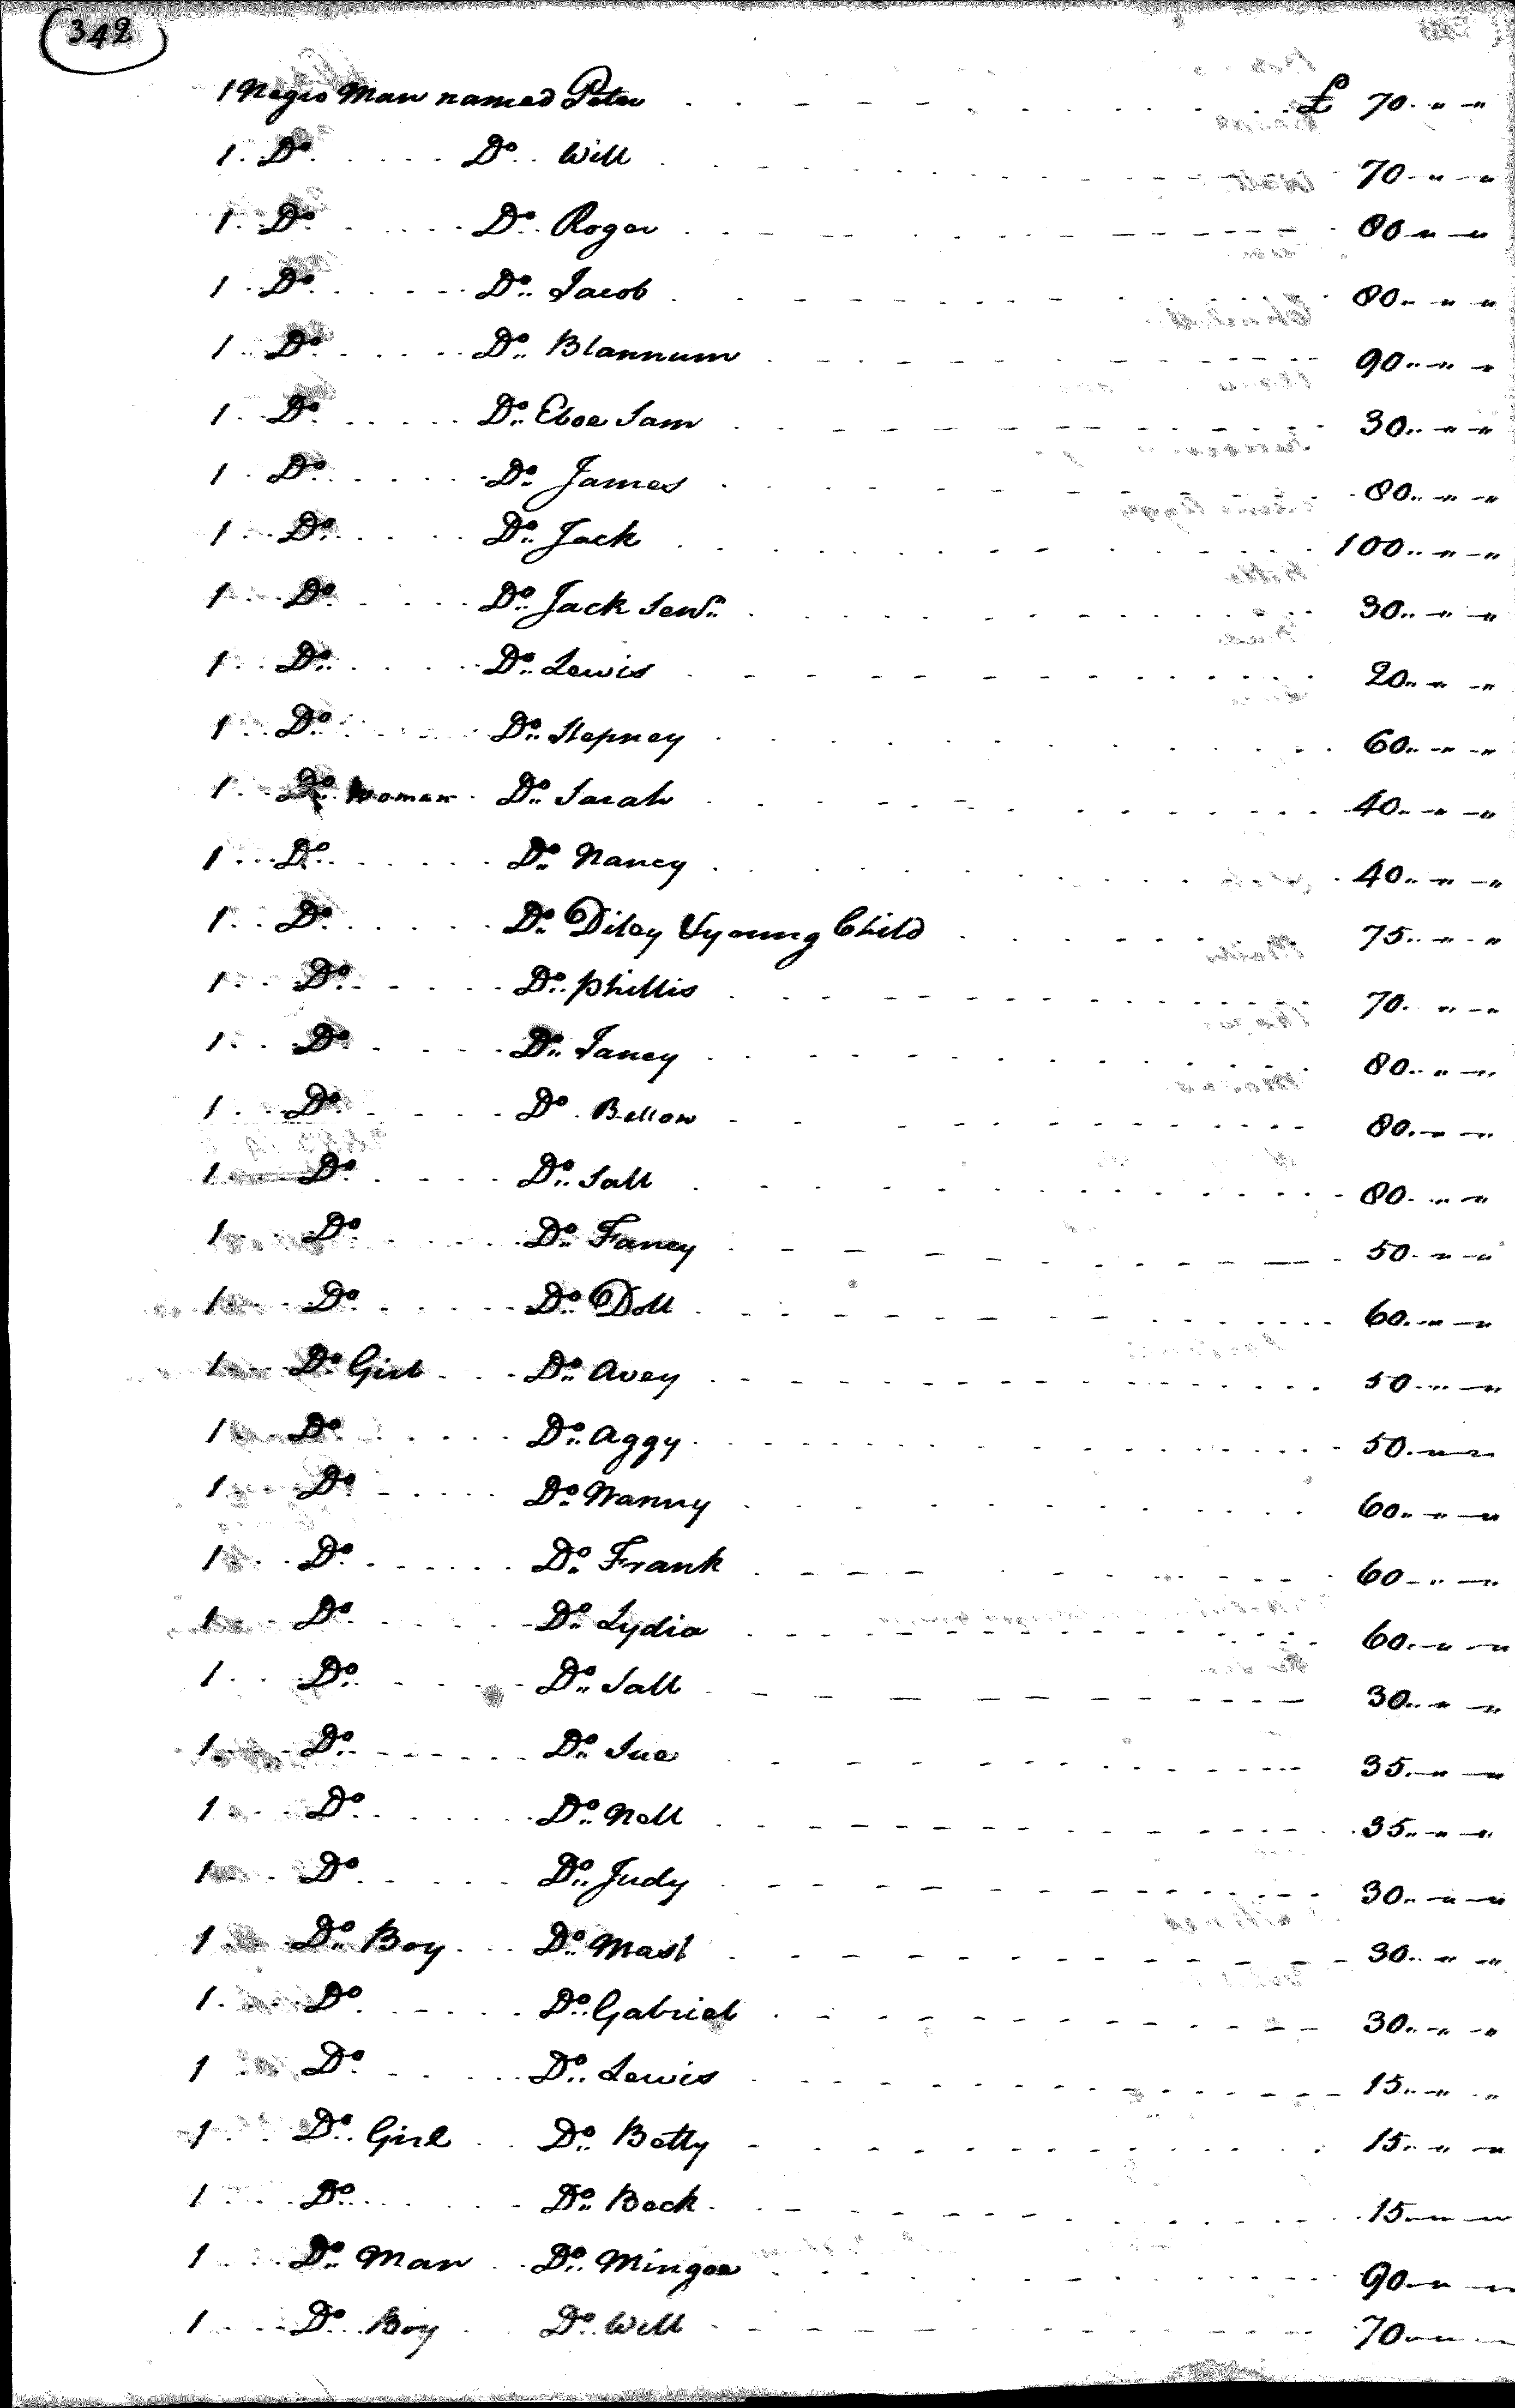 342
1 Negro Man named Peter £ 70 " "
1 Do Do Will 70 " "
1 Do Do Roger 80 " "
1 Do Do Jacob 80 " "
1 Do Do Blannum 90 " "
1 Do Do Eboe Sam 30 " "
1 Do Do James 80 " "
1 Do Do Jack 100 " "
1 Do Do Jack Senr 30 " "
1 Do Do Lewis 20 " "
1 Do Do Stepney 60 " "
1 Do Woman Do Sarah 40 " "
1 Do Do Nancy 40 " "
1 Do Do Dilcy & young Child 75 " "
1 Do Do Phillis 70 " "
1 Do Do Janey 80 " "
1 Do Do 80 " "
1 Do Do Sall 80 " "
1 Do Do Fancy 50 " "
1 Do Do Doll 60 " "
1 Do Girl Do Avey 50 " "
1 Do Do Aggy 50 " "
1 Do Do Nanny 60 " "
1 Do Do Frank 60 " "
1 Do Do Lydia 60 " "
1 Do Do Sall 30 " "
1 Do Do Sue 35 " "
1 Do Do Nell 35 " "
1 Do Do Judy 30 " "
1 Do Boy Do 30 " "
1 Do Do Gabriel 30 " "
1 Do Do Lewis 15 " "
1 Do Girl Do Betty 15 " "
1 Do Do Beck 15 " "
1 Do Man Do Mingoe 90 " "
1 Do Boy Do Will 70 " "